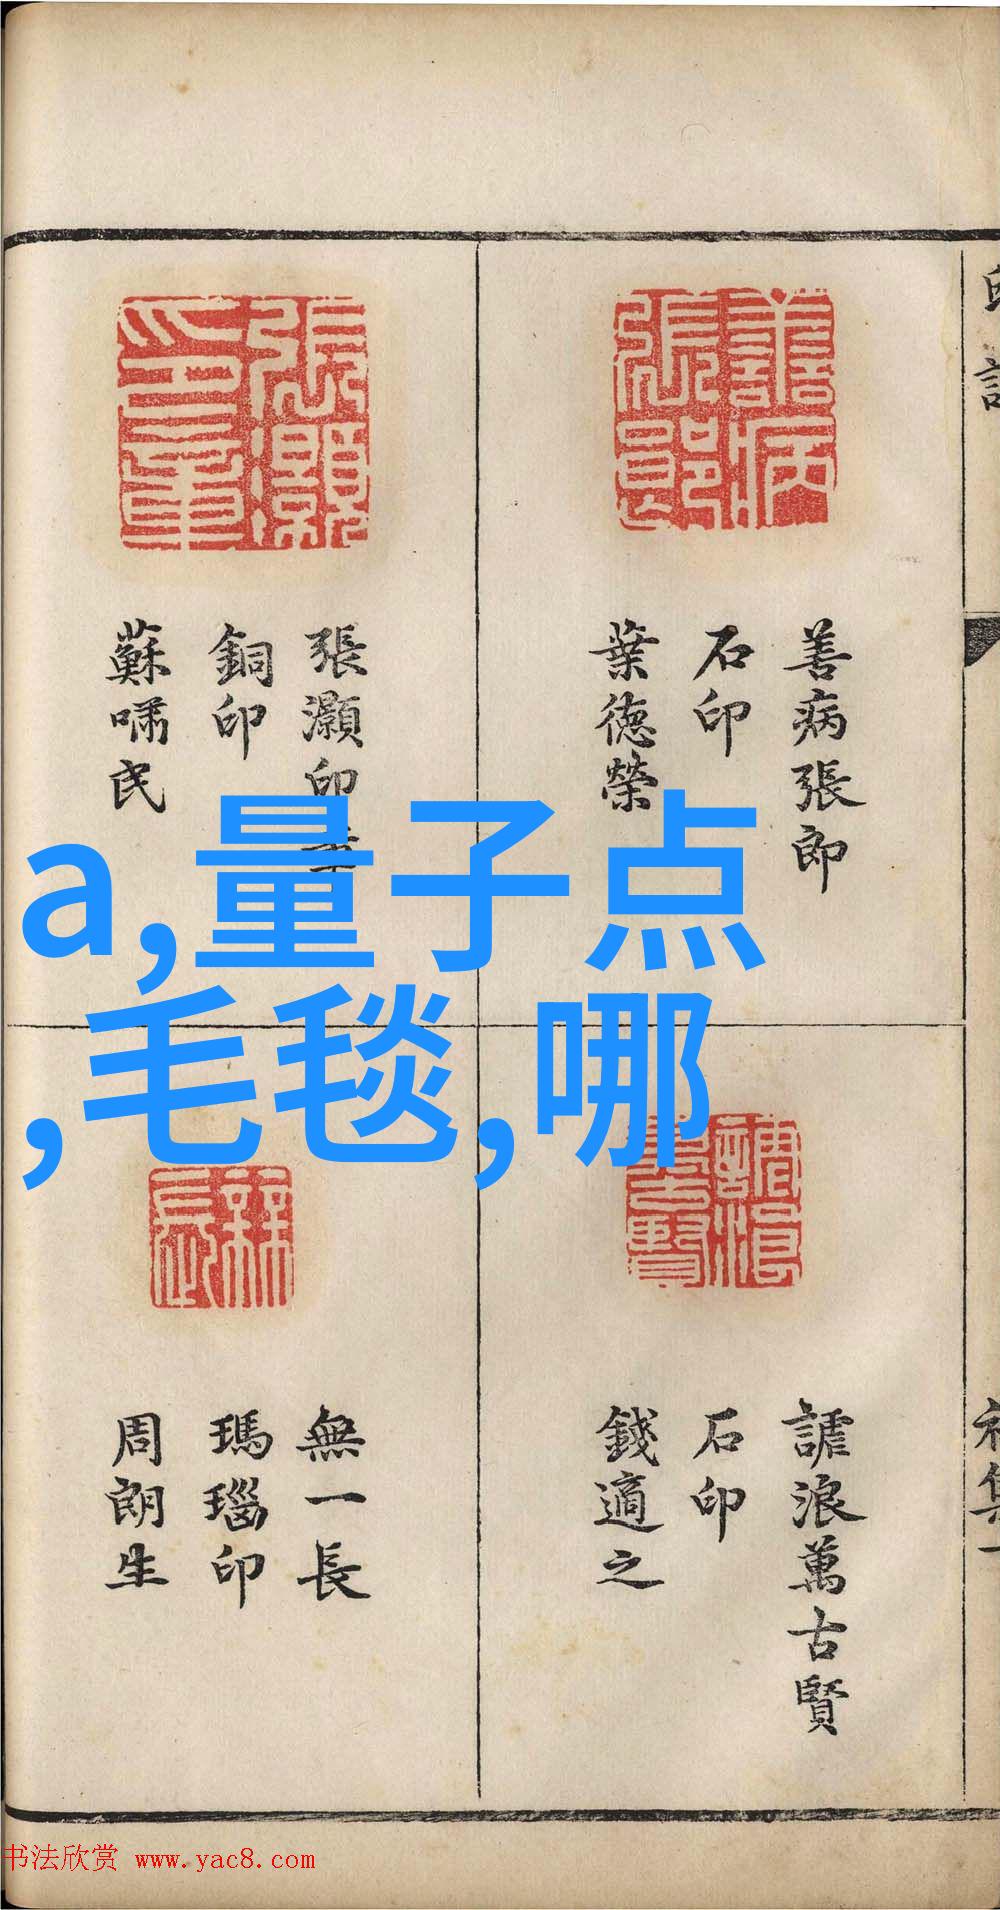 善病張郎
石印
葉德榮
張灝印章
銅印
蘇嘯民
謔浪萬古賢
石印
錢適之
無一長
瑪瑙印
周朗生
初集一
a,量子点
,毛毯,哪
书法欣赏 www.yac8.com